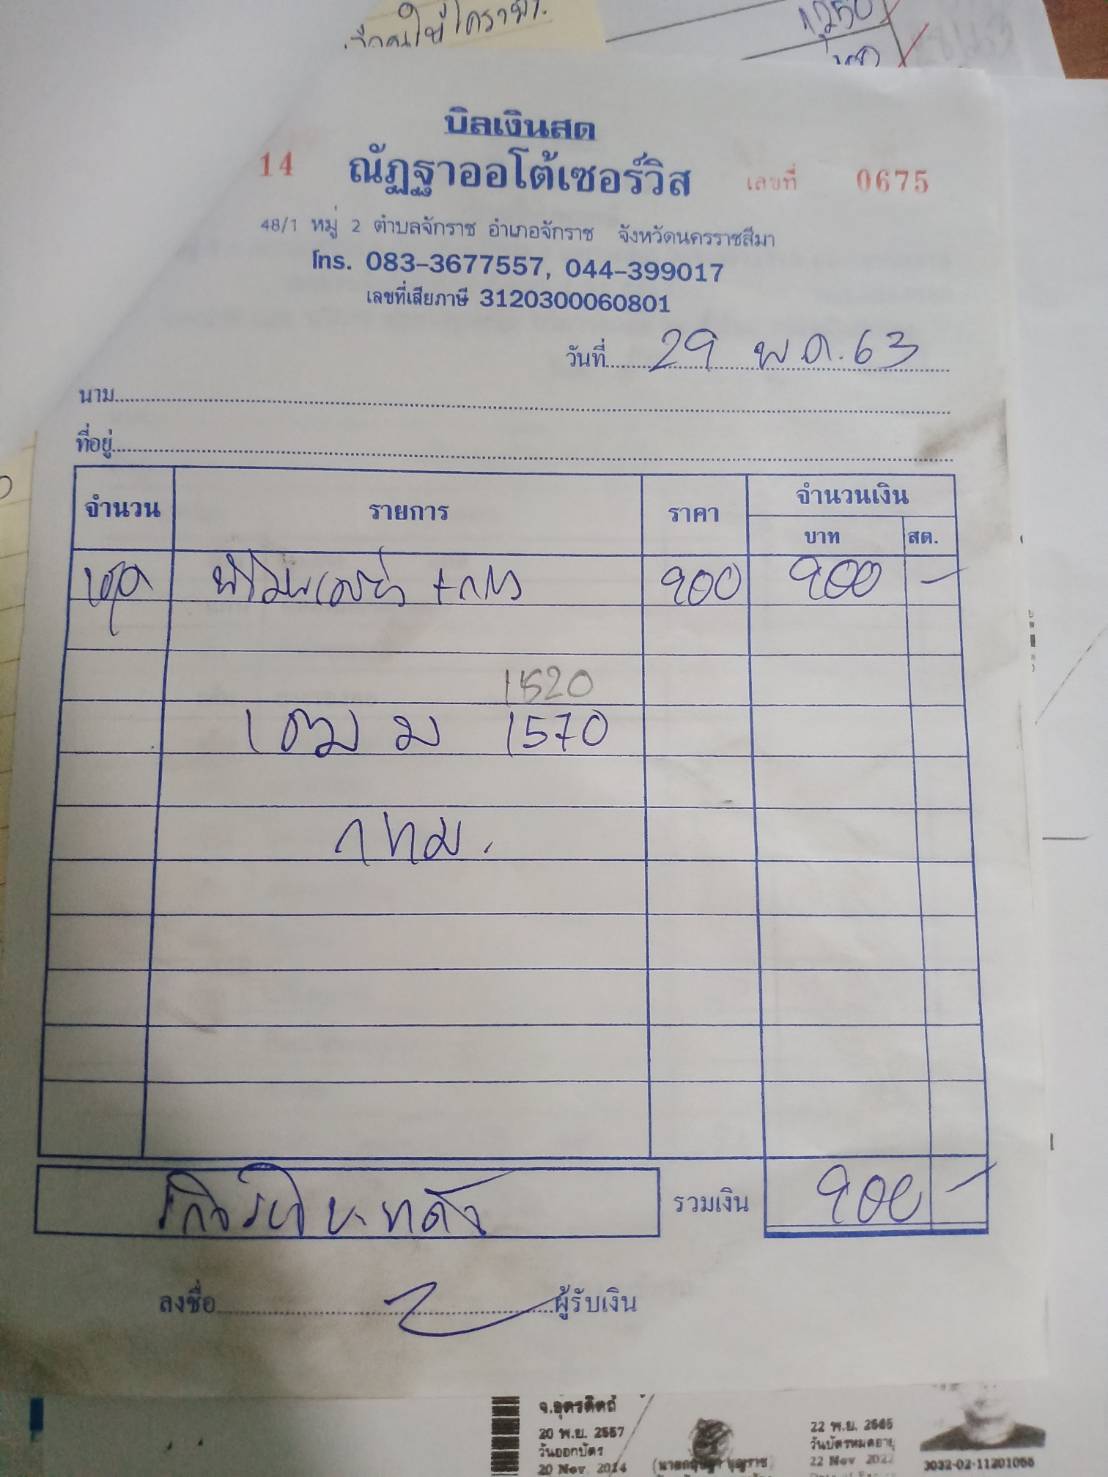 1,250
บิลเงินสด
14 ณัฏฐาออโต้เซอร์วิส เลขที่ 0675
48/1 หมู่ 2 ตำบลจักราช อำเภอจักราช จังหวัดนครราชสีมา
โทร. 083-3677557, 044-399017
เลขที่เสียภาษี 3120300060801
วันที่ 29 พ.ค. 63
นาม
ที่อยู่
จำนวน รายการ ราคา จำนวนเงิน
บาท สต.
ชุด 900 900 -
1520
1570
กทม.
รวมเงิน 900 -
ลงชื่อ ผู้รับเงิน
จ.อุตรดิตถ์
20 พ.ย. 2557 22 พ.ย. 2565
วันออกบัตร วันบัตรหมดอายุ
20 Nov. 2014 22 Nov 2022 3032-02-11201056